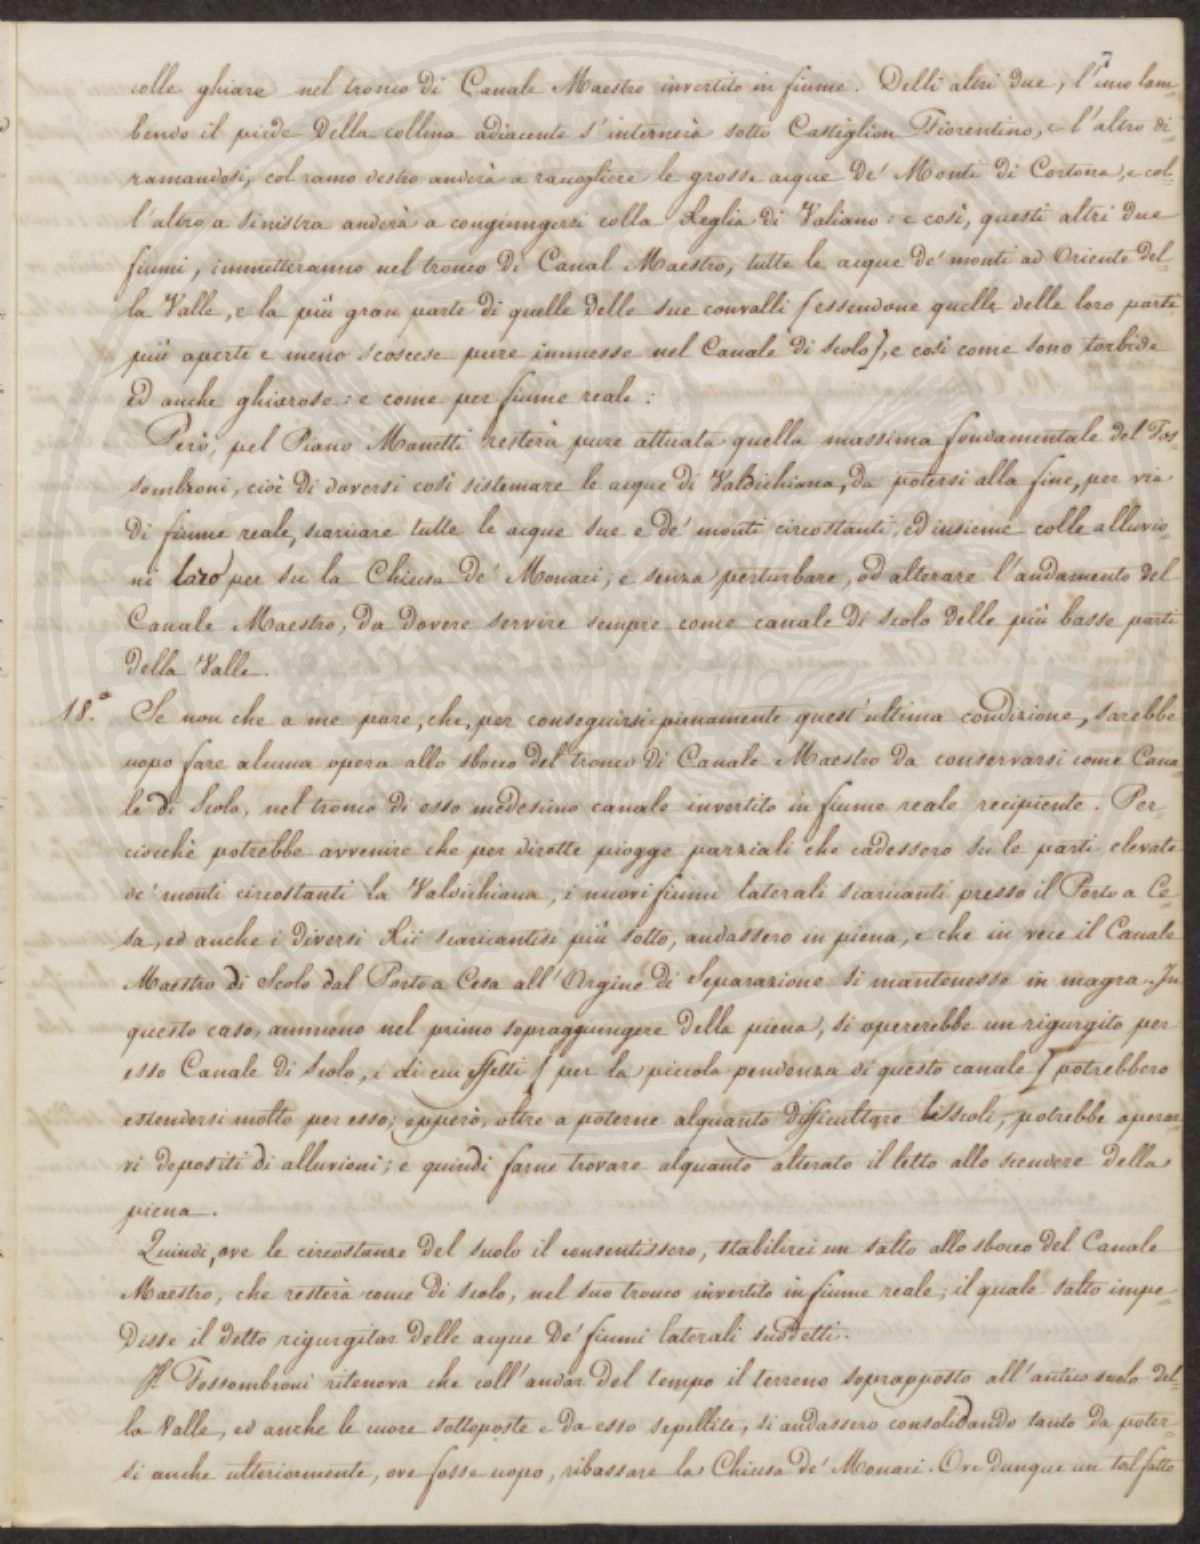 7
colle ghiare nel tronco di Canale Maestro invertito in fiume. Delli altri due, l'uno lam-
bendo il piede della collina adiacente s'internerà sotto Castiglion Fiorentino, e l'altro di-
ramandosi, col ramo destro anderà a raccogliere le grosse acque de' Monti di Cortona, e col-
l'altro a sinistra anderà a congiungersi colla Reglia di Valiano: e così, questi altri due
fiumi, immetteranno nel tronco di Canal Maestro, tutte le acque de' monti ad Oriente del-
la Valle, e la più gran parte di quelle delle sue convalli (essendone quelle delle loro parti
più aperte e meno scoscese pure immesse nel Canale di scolo), e così come sono torbide
ed anche ghiarose: e come per fiume reale:
Però, pel Piano Manetti resterà pure attuata quella massima fondamentale del Fos-
sombroni, cioè di doversi così sistemare le acque di Valdichiana, da potersi alla fine, per via
di fiume reale, scaricare tutte le acque sue e de' monti circostanti, ed insieme colle alluvio-
ni loro per su la Chiusa de' Monaci, e senza perturbare, od alterare l'andamento del
Canale Maestro, da dovere servire sempre come canale di scolo delle più basse parti
della Valle.
18.° Se non che a me pare, che, per conseguirsi pienamente quest'ultima condizione, sarebbe
uopo fare alcuna opera allo sbocco del tronco di Canale Maestro da conservarsi come Cana-
le di Scolo, nel tronco di esso medesimo canale invertito in fiume reale recipiente. Per-
ciocchè potrebbe avvenire che per dirotte piogge parziali che cadessero su le parti elevate
de' monti circostanti la Valdichiana, i nuovi fiumi laterali scaricanti presso il Porto a Ce-
sa, ed anche i diversi Rii scaricantisi più sotto, andassero in piena, e che in vece il Canale
Maestro di Scolo dal Porto a Cesa all'Argine di Separazione si mantenesse in magra. In
questo caso, ammeno nel primo sopraggiungere della piena, si opererebbe un rigurgito per
esso Canale di Scolo, i di cui effetti (per la piccola pendenza di questo canale) potrebbero
estendersi molto per esso; epperò, oltre a poterne alquanto difficultare li scoli, potrebbe operar-
vi depositi di alluvioni; e quindi farne trovare alquanto alterato il letto allo scendere della
piena.
Quindi, ove le circostanze del suolo il consentissero, stabilirei un salto allo sbocco del Canale
Maestro, che resterà come di scolo, nel suo tronco invertito in fiume reale; il quale salto impe-
disse il detto rigurgitar delle acque de' fiumi laterali suddetti.
Il Fossombroni riteneva che coll'andar del tempo il terreno soprapposto all'antico suolo del-
la Valle, ed anche le cuore sottoposte e da esso sepellite, si andassero consolidando tanto da poter-
si anche ulteriormente, ove fosse uopo, ribassare la Chiusa de' Monaci. Ove dunque un tal fatto